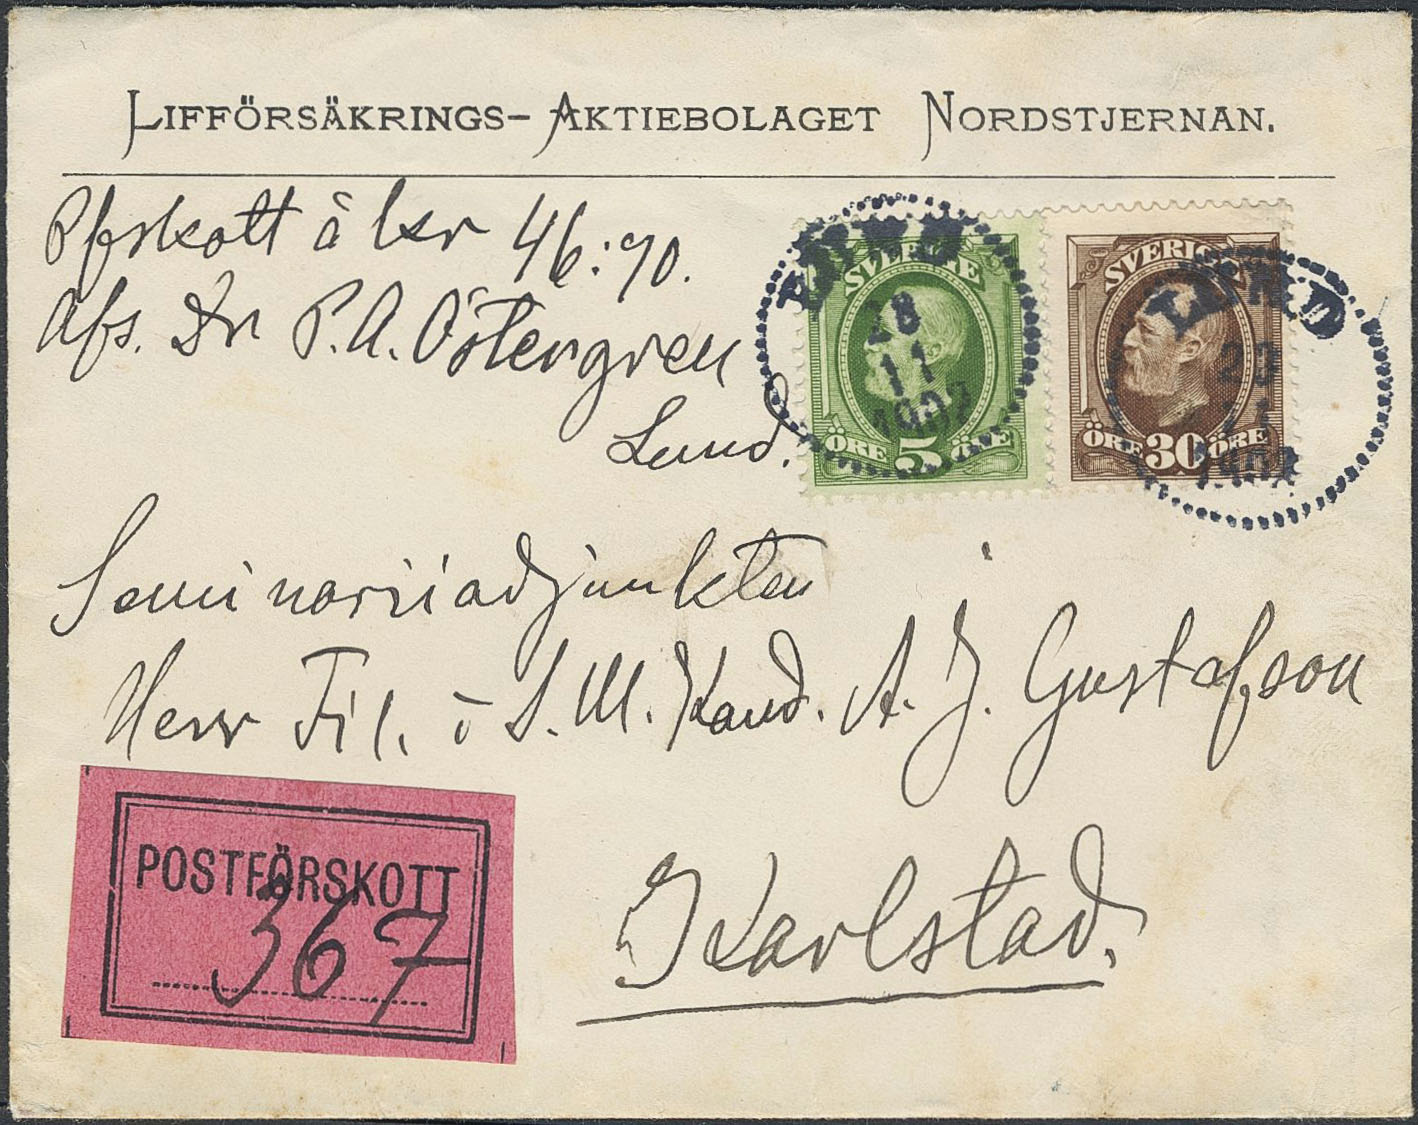 LIFFÖRSÄKRINGS-AKTIEBOLAGET NORDSTJERNAN.
Pfrskott å kr 46:90.
Afs. Dr P. A. Östergren
Lund.
LUND
28
11
1902
SVERIGE
ÖRE 5 ÖRE
LUND
SVERIGE
ÖRE 30 ÖRE
Seminariiadjunkten
Herr Fil. o S. M. Kand. A. J. Gustafson
Karlstad.
POSTFÖRSKOTT
367